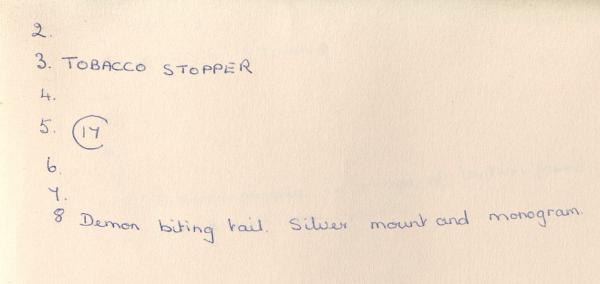 2.
3. TOBACCO STOPPER
4.
5. 17
6.
7.
8 Demon biting tail. Silver mount and monogram.